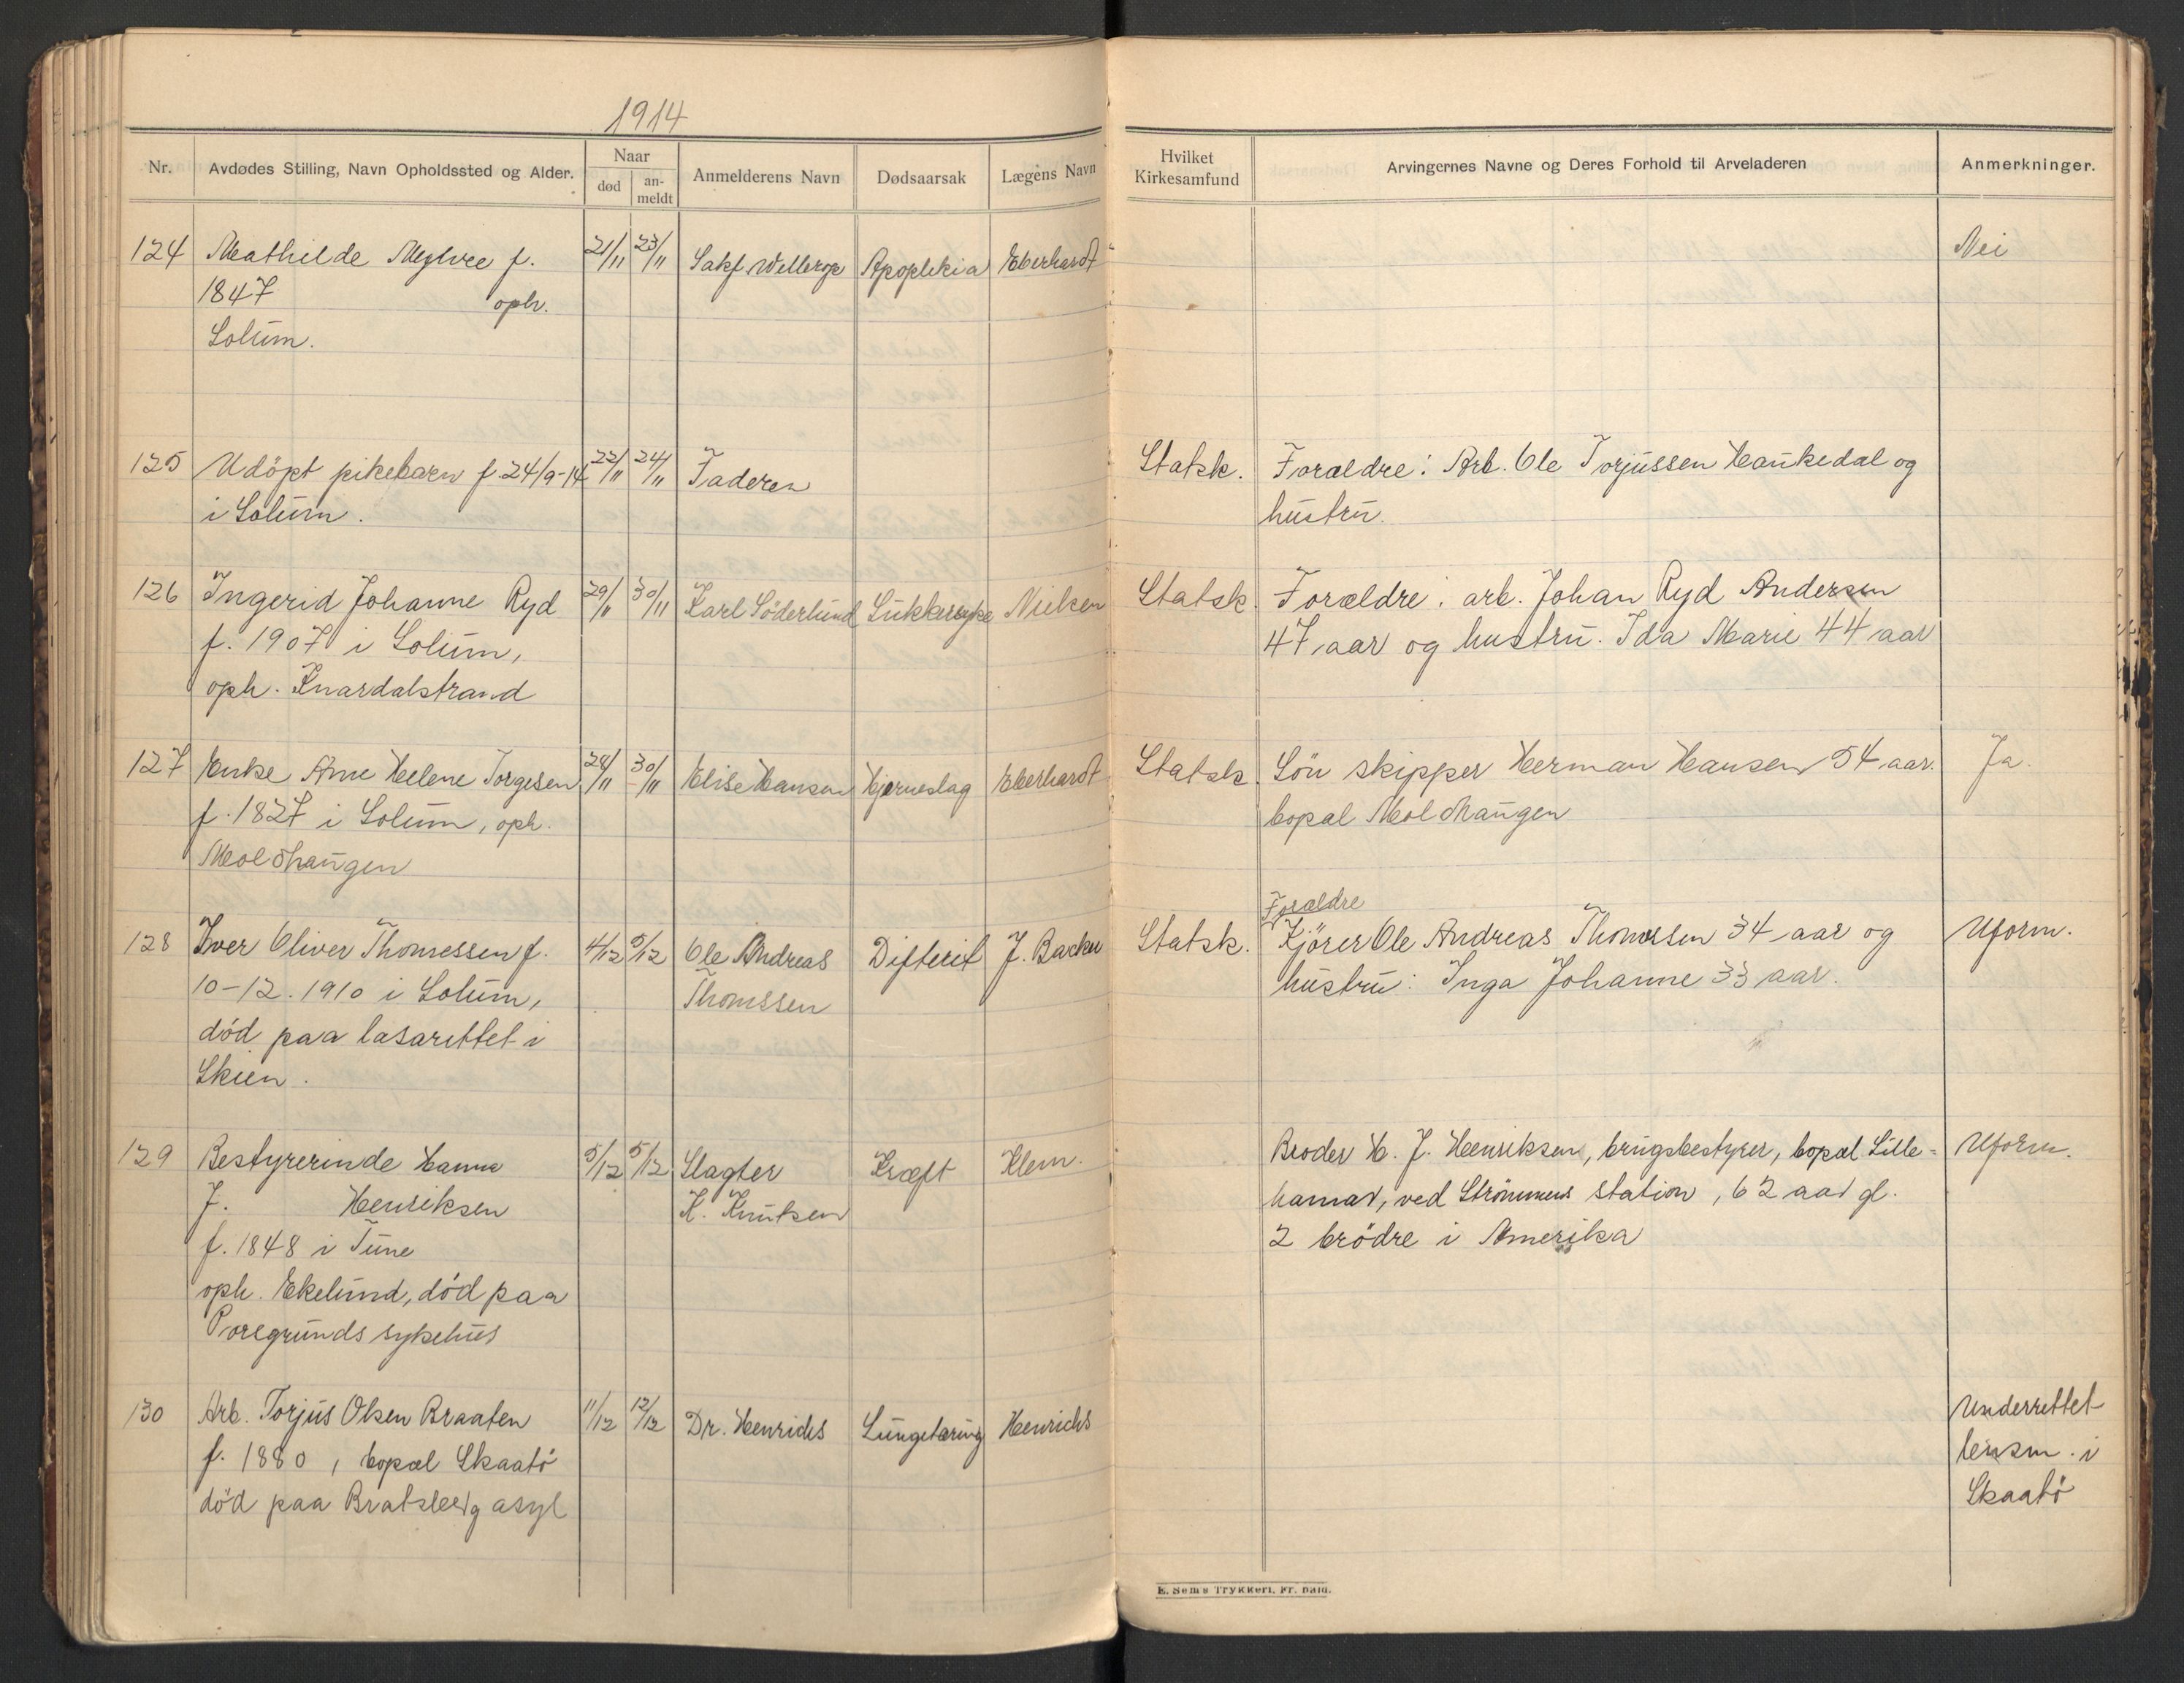 1914
Nr. Avdødes Stilling, Navn Opholdssted og Alder. Naar død an-meldt Anmelderens Navn Dødsaarsak Lægens Navn Hvilket Kirkesamfund Arvingernes Navne og Deres Forhold til Arveladeren Anmerkninger.
124 Mathilde f. 21/11 23/11 Sakf. Wellerop Apoplekia Eberhardt Nei
1847 oph.
Solum.
125 Udöpt pikebarn f. 24/9-14 22/11 24/11 Faderen Statsk. Forældre: Arb. Ole Torjussen Haukedal og
i Solum. hustru.
126 Ingerid Johanne Ryd 29/11 30/11 Karl Söderlund Sukkersyke Nielsen Statsk. Forældre: arb. Johan Ryd Andersen
f. 1907 i Solum, 47 aar og hustru. Ida Marie 44 aar
oph. Knardalstrand
127 Enke Ane Helene Torgesen 28/11 30/11 Elise Hansen Hjerneslag Eberhardt Statsk. Sön skipper Herman Hansen 54 aar. Ja.
f. 1827 i Solum, oph. bopæl Moldhaugen
Moldhaugen
Forældre
128 Iver Oliver Thomessen f. 4/12 5/12 Ole Andreas Difterit J. Backer Statsk. Kjörer Ole Andreas Thomssen 34 aar og Uform.
10-12. 1910 i Solum, Thomssen hustru: Inga Johanne 33 aar.
död paa lasarettet i
Skien.
129 Bestyrerinde Hanna 5/12 5/12 Slagter Kræft Klem. Broder H. J. Henriksen, brugsbestyrer, bopæl Lille- Uform.
J. Henriksen K. Knutsen hamar, ved Strömmens station, 62 aar gl.
f. 1848 i Tune 2 brödre i Amerika
oph. Ekelund, död paa
Porsgrunds sykehus
130 Arb. Torjus Olsen Braaten 11/12 12/12 Dr. Henrichs Lungetæring Henrichs Underrettet
f. 1880, bopæl Skaatö lensm. i
död paa Bratsberg asyl Skaatö
E. Sems Trykkeri, Fr. hald.